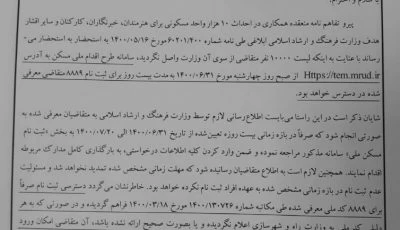 پیرو تفاهم نامه منعقده همکاری در احداث ۱۰ هزار واحد مسکونی برای هنرمندان، خبرنگاران، کارکنان و سایر اقشار
هدف وزارت فرهنگ و ارشاد اسلامی ابلاغی طی نامه شماره ۶۰۲۰۱/۴۰۰ مورخ ۱۴۰۰/۰۵/۱۶ به استحضار به استحضار می-
رساند با عنایت به اینکه لیست ۱۰۰۰۰ نفر متقاضی از سوی آن وزارت واصل نگردید، سامانه طرح اقدام ملی مسکن به آدرس
Https://tem.mrud.ir از صبح روز چهارشنبه مورخ ۱۴۰۰/۰۶/۳۱ به مدت بیست روز برای ثبت نام ۸۸۸۹ متقاضی معرفی
شده در دسترس خواهد بود.
شایان ذکر است در این راستا می‌بایست اطلاع‌رسانی لازم توسط وزارت فرهنگ و ارشاد اسلامی به متقاضیان معرفی شده به
صورتی انجام شود که صرفاً در بازه زمانی بیست روزه تعیین‌شده از تاریخ ۱۴۰۰/۰۶/۳۱ الی ۱۴۰۰/۰۷/۲۰ به بخش «ثبت نام
مسکن ملی» سامانه مذکور مراجعه نموده و ضمن وارد کردن کلیه اطلاعات درخواستی، به بارگذاری کامل مدارک مربوطه
اقدام نمایند. همچنین لازم است به اطلاع متقاضیان رسانیده شود که مهلت زمانی مشخص شده تمدید نخواهد شد و مسئولیت
عدم ثبت نام در بازه زمانی مشخص شده به عهده افراد ثبت نام نکرده خواهد بود. خاطرنشان می‌گردد دسترسی ثبت نام صرفاً
برای ۸۸۸۹ کد ملی معرفی شده طی مکاتبه شماره ۱۴۰۰/۱۳۰۷۲۶ مورخ ۱۴۰۰/۰۳/۱۸ فراهم گردیده و در صورتی که به هر
دلیل کد ملی به وزارت راه و شهرسازی اعلام نگردیده و یا بصورت صحیح ارائه نشده باشد، آن متقاضی امکان ورود